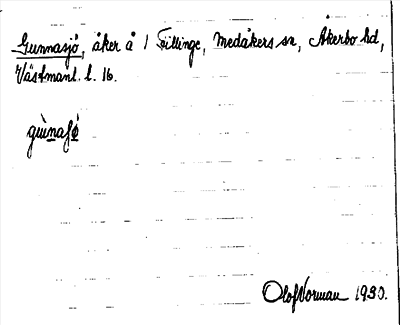 Gunnasjö, åker å 1 Fittinge, Medåkers sn, Åkerbo hd,
Västmanl. l. 16.
Olof Norman 1930.